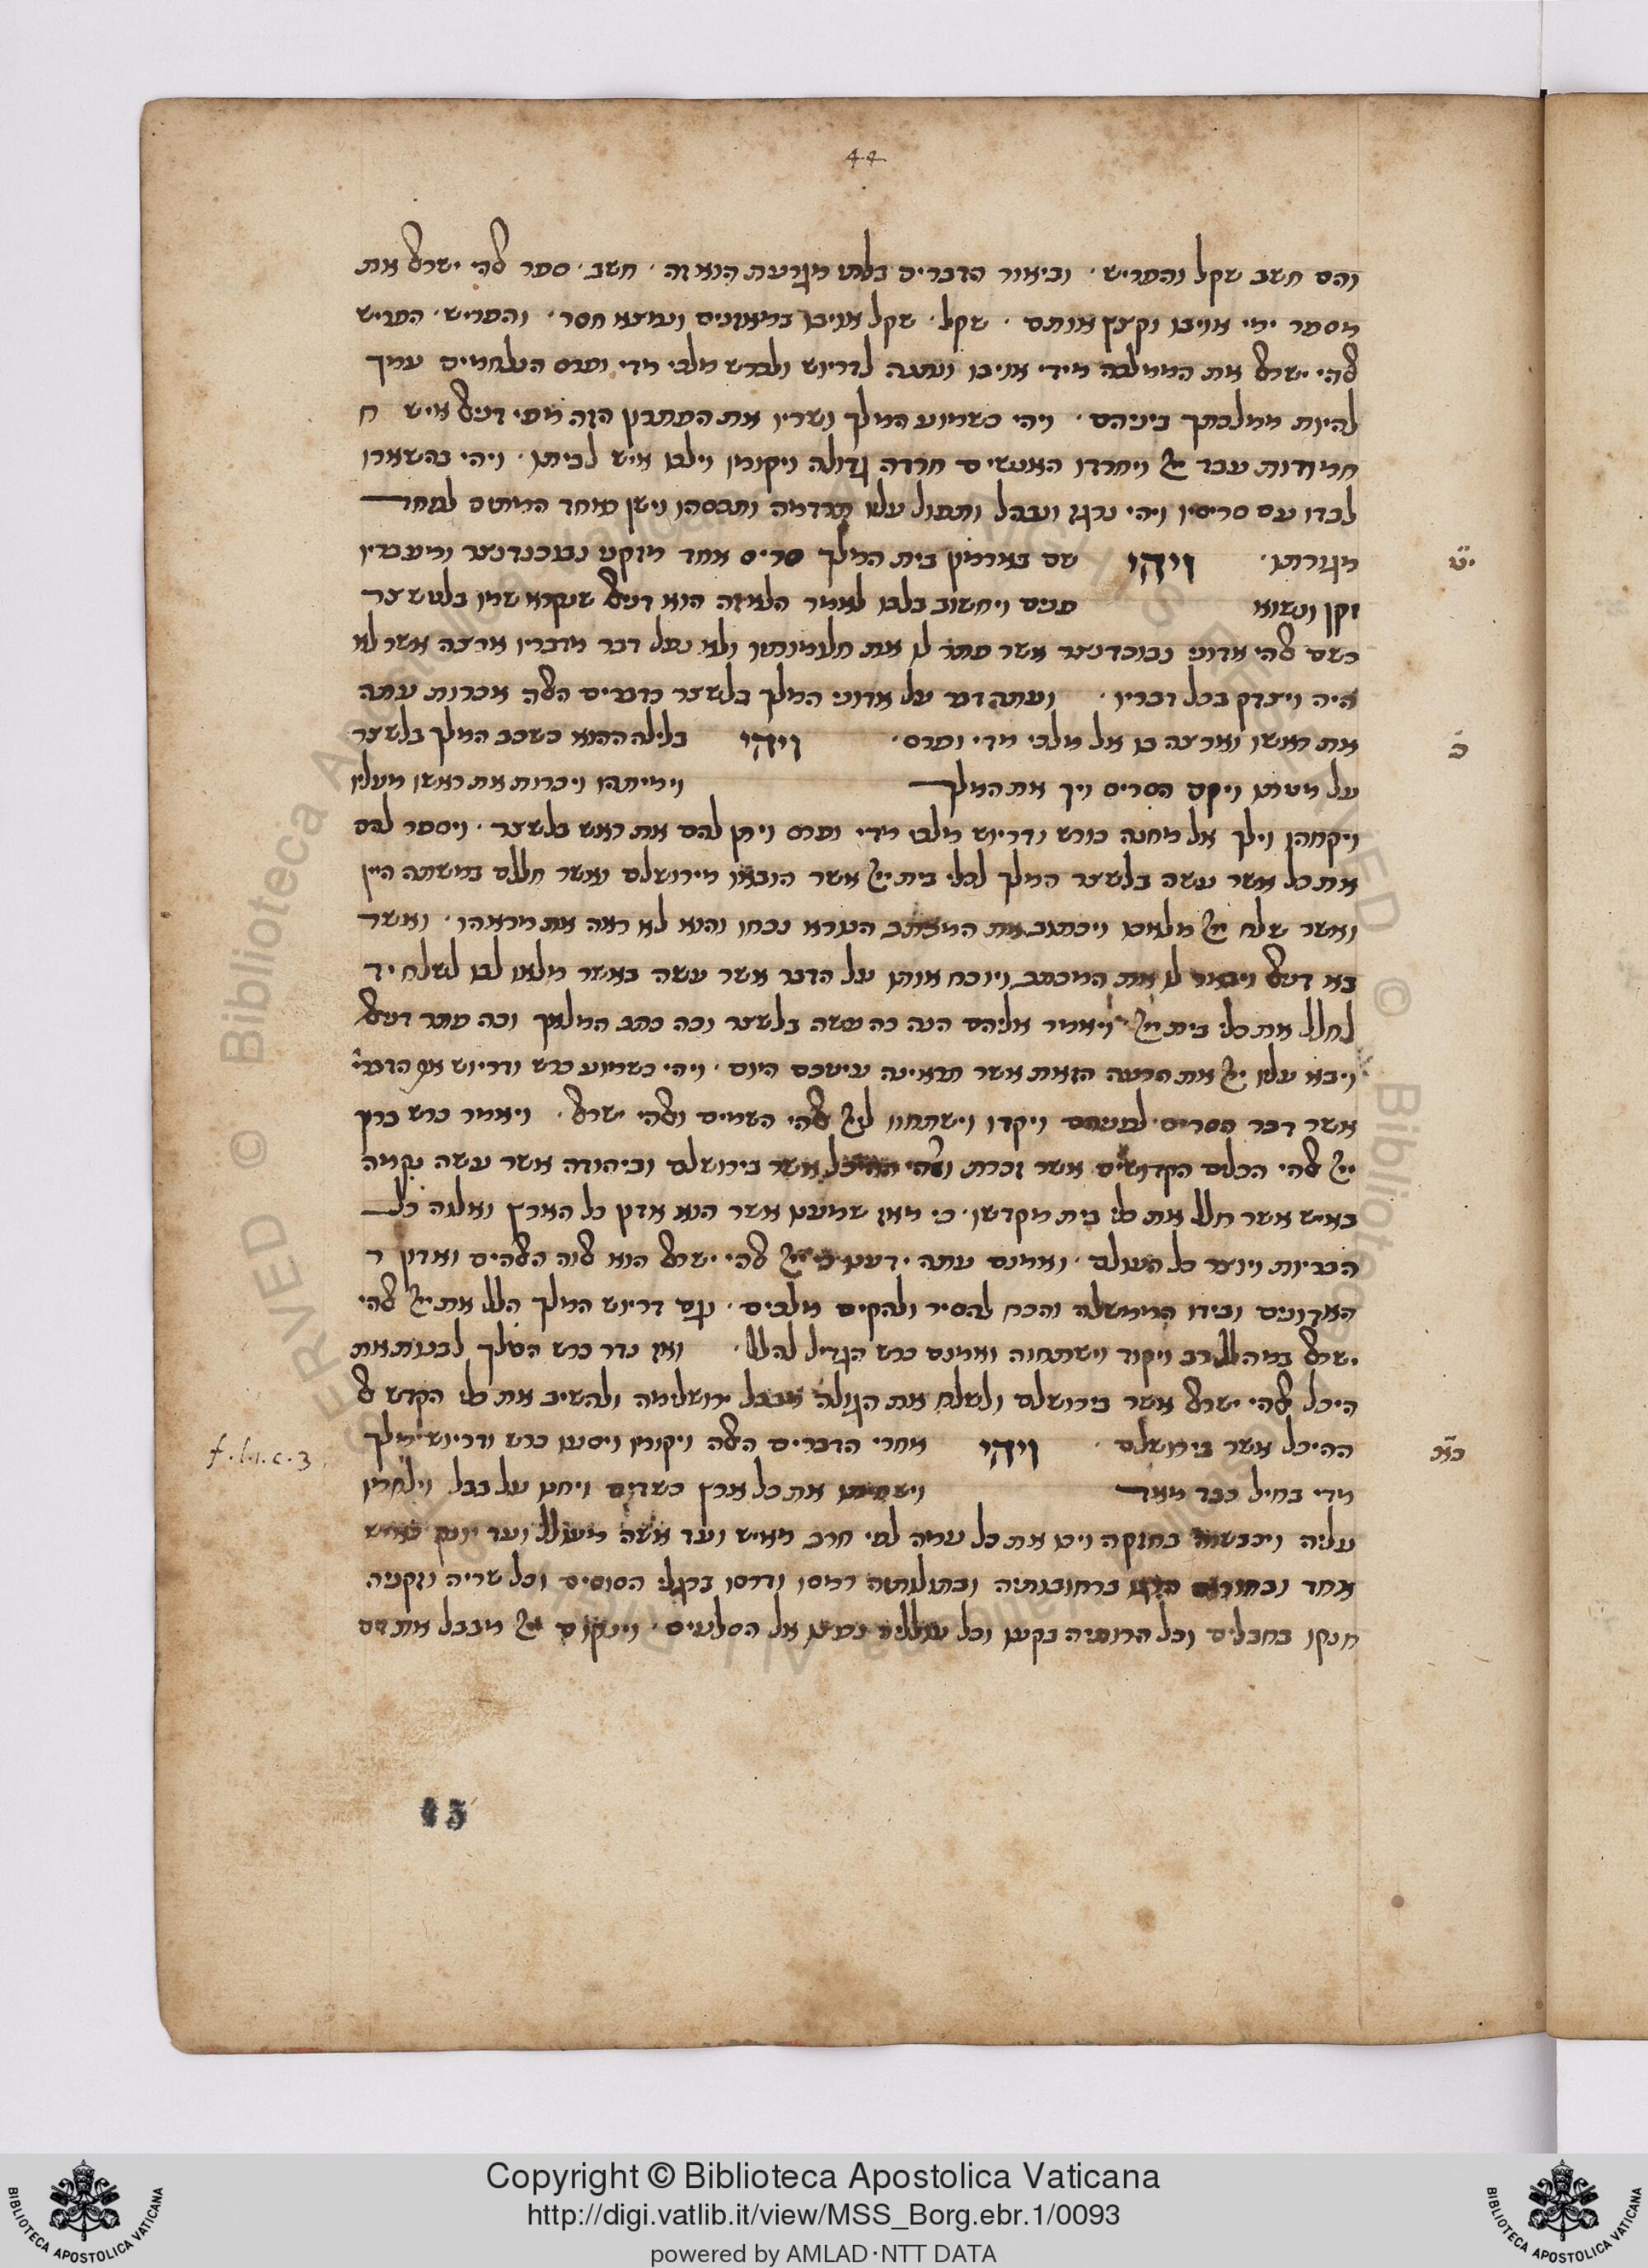 44
והם חשב שקל והפריש · וביאור הדברים בלתי מגרעת הוא זה · חשב · ספר אלהי ישראל את
מספר ימי אויבו וקצץ אותם · שקל · שקל אויבו במאזנים ונמצא חסר · והפריש · הפריש
אלהי ישראל את הממלכה מידי אויבו ונתנה לדריוש ולכרש מלכי מדי ופרס הנלחמים עמך
להיות ממלכתך ביניהם · ויהי כשמוע המלך ושריו את הפתרון הזה מפי דניאל איש ח
חמודות עבד ייי ויחרדו האנשים חרדה גדולה ויקומו וילכו איש לביתו · ויהי בהשארו
לבדו עם סריסיו ויהי נרגז ונבהל ותפול עליו תרדמה ותכסהו ויישן פוחד המיתם לפחד
מגורתו · ויהי שם בארמון בית המלך סריס אחד מזקני נבוכדנצר ומעבדיו
יט
זקן ונשוא פנים ויחשוב בלבו לאמר הלא זה הוא דניאל שנקרא שמו בלטשצר
כשם אלהי אדוני נבוכדנצר אשר פתר לו את חלומותיו ולא נפל דבר מדבריו ארצה אשר לא
היה ויצדק בכל דבריו · ועתה דבר על אדוני המלך בלשצר כדברים האלה אכרות עתה
את ראשו וארצה בו אל מלכי מדי ופרס · ויהי בלילה ההוא כשכב המלך בלשצר
כ
על מטתו ויקם הסריס ויך את המלך וימיתהו ויכרות את ראשו מעליו
ויקחהו וילך אל מחנה כורש ודריוש מלכי מדי ופרס ויתן להם את ראש בלשצר · ויספר להם
את כל אשר עשה בלשצר המלך לכלי בית ייי אשר הובאו מירושלם ואשר חללם במשתה היין
ואשר שלח ייי מלאכו ויכתוב את המכתב הנורא נכחו והוא לא ראה את מראהו · ואשר
בא דניאל ויבאר לו את המכתב ויוכח אותו על הדבר אשר עשה באשר מלאו לבו לשלח יד
לחלל את כלי בית ייי ויאמר אליהם הנה כה עשה בלשצר וכה כתב המלאך וכה פתר דניאל
ויבא עליו ייי את הרעה הזאת אשר תראינה עיניכם היום · ויהי כשמוע כרש ודריוש את הדברי
אשר דבר הסריס לפניהם ויקדו וישתחוו לייי אלהי השמים ואלהי ישראל · ויאמר כרש ברוך
ייי אלהי הכלים הקדושים אשר זכרת ואלהי ההיכל אשר בירושלם וביהודה אשר עשה נקמה
באיש אשר חלל את כלי בית מקדשו · כי מאז שמעתי אשר הוא אדון כל הארץ ואלוה כל
הבריות ויוצר כל העולם · ואמנם עתה ידעתי כי ייי אלהי ישראל הוא אלוה האלהים ואדון ר
האדונים ובידו הממשלה והכח להסיר ולהקים מלכים · וגם דריוש המלך הלל את ייי אלהי
ישראל במהלל רב ויקוד וישתחוה ואמנם כרש הגדיל להלל · ואז נדר כרש המלך לבנות את
היכל אלהי ישראל אשר בירושלם ולשלח את הגולה מבבל ירושלימה ולהשיב את כלי הקדש אל
ההיכל אשר בירושלם · ויהי אחרי הדברים האלה ויקומו ויסעו כרש ודריוש מלך
כא
f. l. 1. c. 3
מדי בחיל כבד מאד וישחיתו את כל ארץ כשדים ויחנו על בבל וילחמו
עליה ויכבשוה בחזקה ויכו את כל עמה לפי חרב מאיש ועד אשה מעולל ועד יונק כאיש
אחד ובחוריה הרגו ברחובותיה ובתולותיה רמסו ודרסו ברגלי הסוסים וכל שריה וזקניה
חנקו בחבלים וכל הרותיה בקעו וכל עולליה נפצו אל הסלעים · וינקום ייי מבבל את דם
45
Copyright © Biblioteca Apostolica Vaticana
http://digi.vatlib.it/view/MSS_Borg.ebr.1/0093
powered by AMLAD·NTT DATA